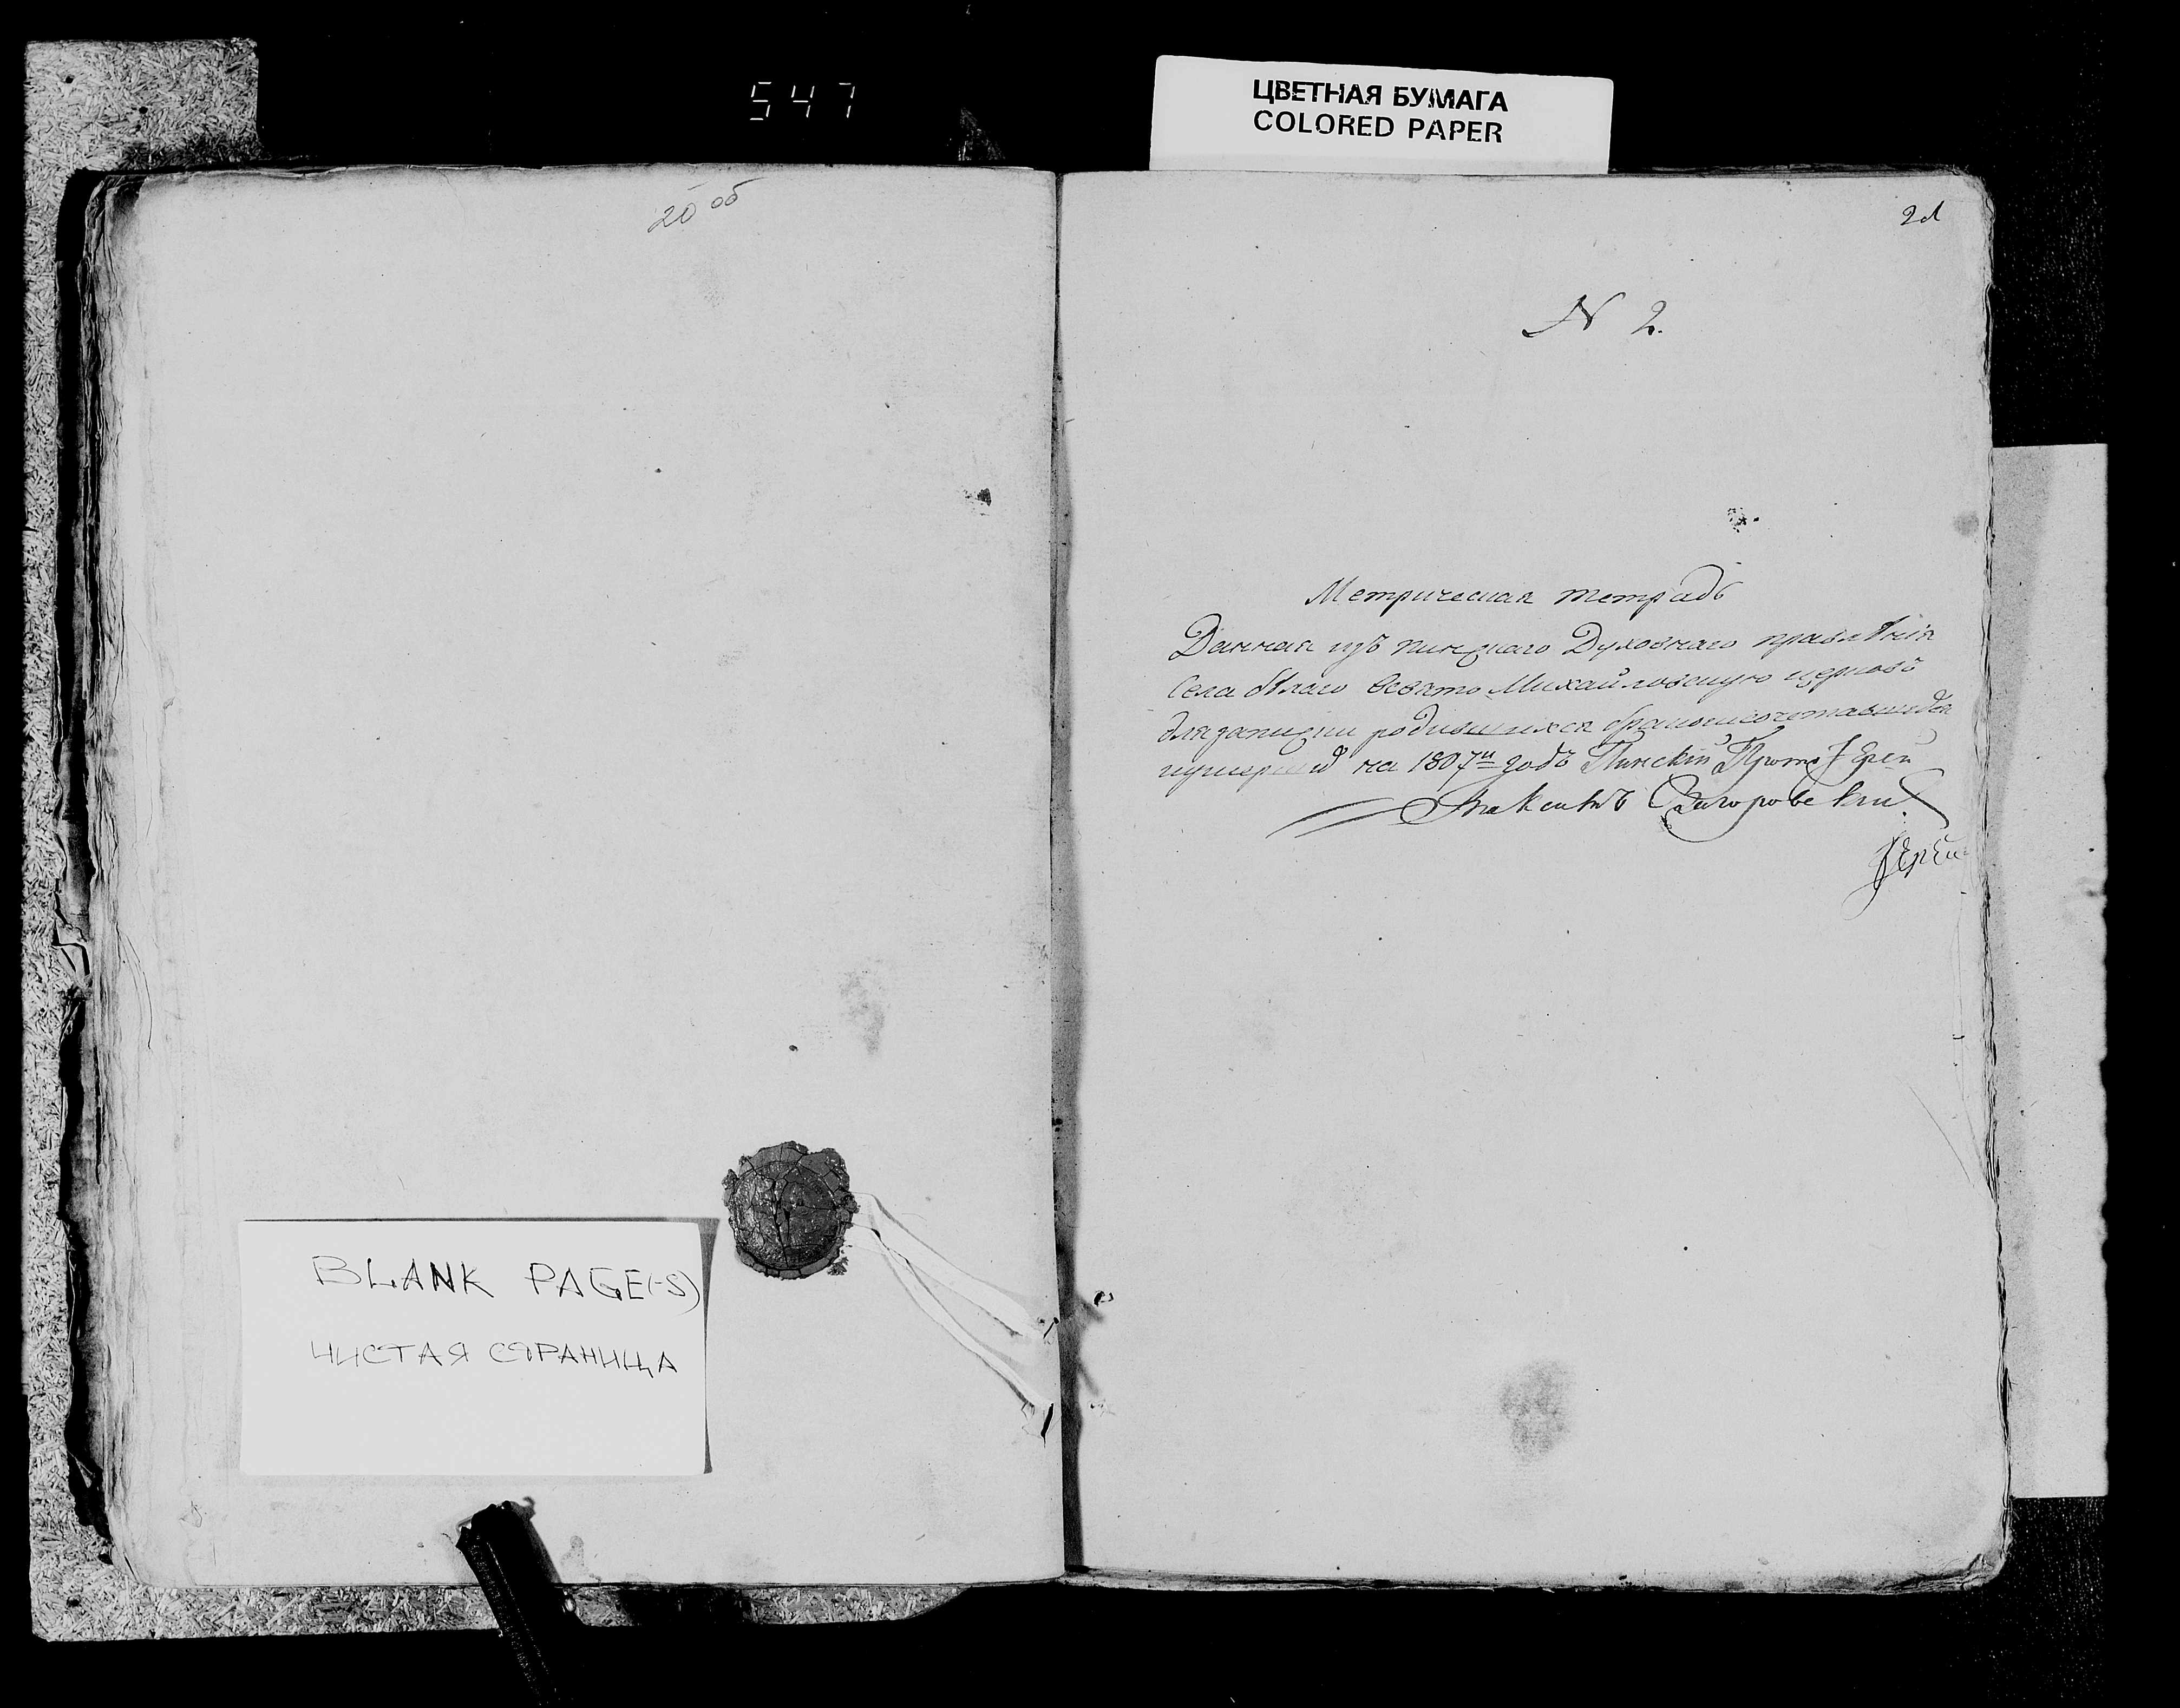 547
ЦВЕТНАЯ БУМАГА
COLORED PAPER
20 об
21
N 2.
Метрическая тетрадь
Данная изъ пинскаго Духовнаго правлѣнія
Села бѣлаго всвято Михайловскую церковь
для записки родившихся бракомсочетавшихся
иумерших на 1807й годъ Пинскій Прото Іерей
Загоровский
Іерей
BLANK PAGE(-S)
ЧИСТАЯ СТРАНИЦА